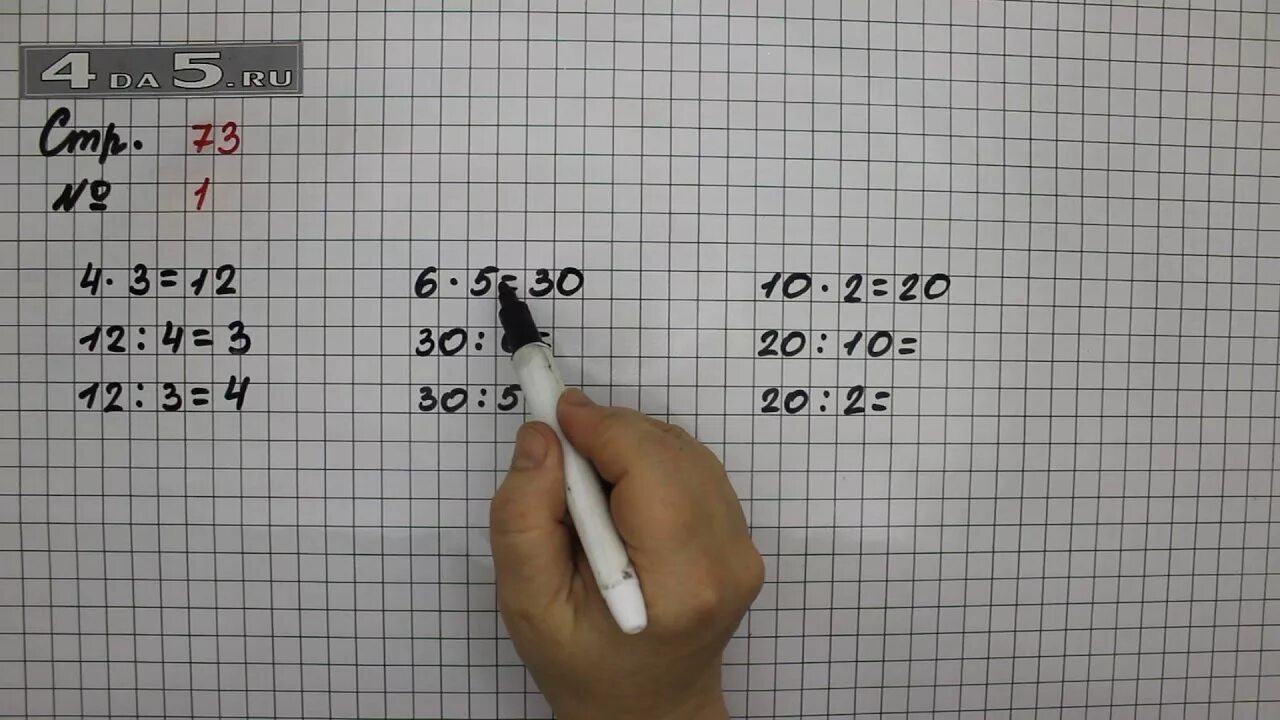 4 DA 5.RU
Стр. 73
№ 1
4 · 3 = 12
12 : 4 = 3
12 : 3 = 4
6 · 5 = 30
30 : =
30 : 5
10 · 2 = 20
20 : 10 =
20 : 2 =